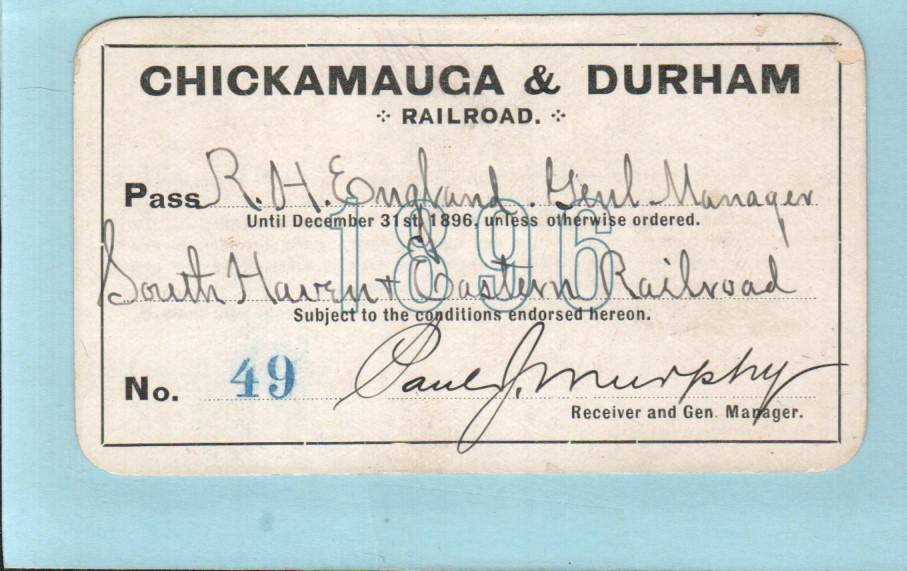 CHICKAMAUGA & DURHAM
RAILROAD.
Pass R. H. England. Genl. Manager
Until December 31st, 1896, unless otherwise ordered.
1896
of
South Haven & Eastern Railroad
Subject to the conditions endorsed hereon.
No. 49 Paul J. Murphy
Receiver and Gen. Manager.